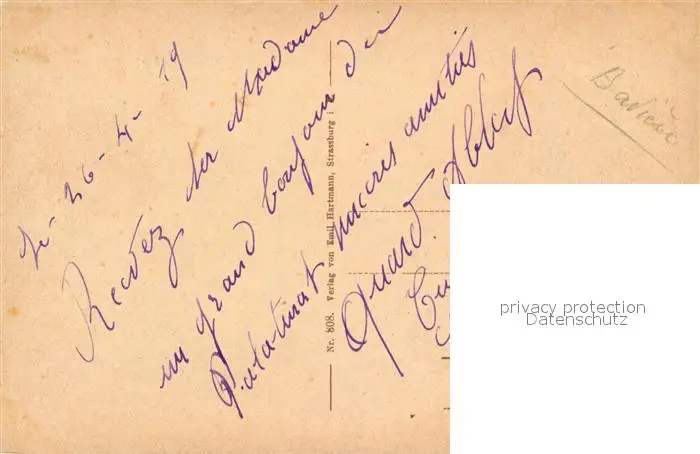 le 26-4-19
Recevez chr Madame
un grand bonjour du
Palatinat sincères amitiés
Nr. 808. Verlag von Emil Hartmann, Strassburg i
privacy protection
Datenschutz